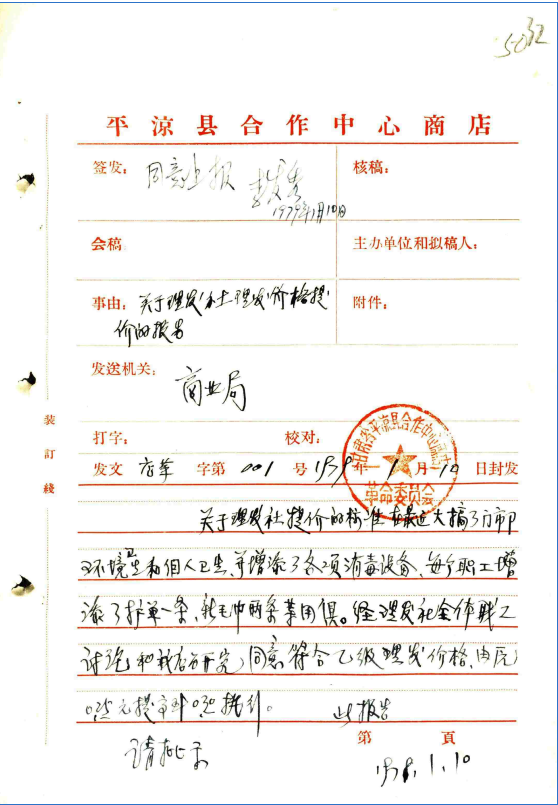 5032
平凉县合作中心商店
签发：同意上报
1979年1月10日
核稿：
会稿
主办单位和拟稿人：
事由：关于理发社理发价格提
价的报告
附件：
发送机关：
商业局
打字：
校对：
甘肃省平凉县合作中心商店
革命委员会
发文 店革 字第 001 号 1979年 1 月 10 日封发
装
訂
綫
关于理发社提价的标准，在最近大搞了
环境卫生和个人卫生，并增添了各项消毒设备，每个职工增
添了护单一条，新毛巾两条等用俱。经理发社全体职工
讨论和我店研究，同意符合乙级理发价格，由原
元提
此报告
请批示
第 頁
1.10